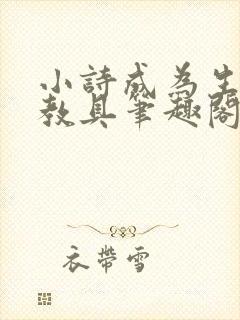 小詩成為生
教具筆趣閣
衣帶雪